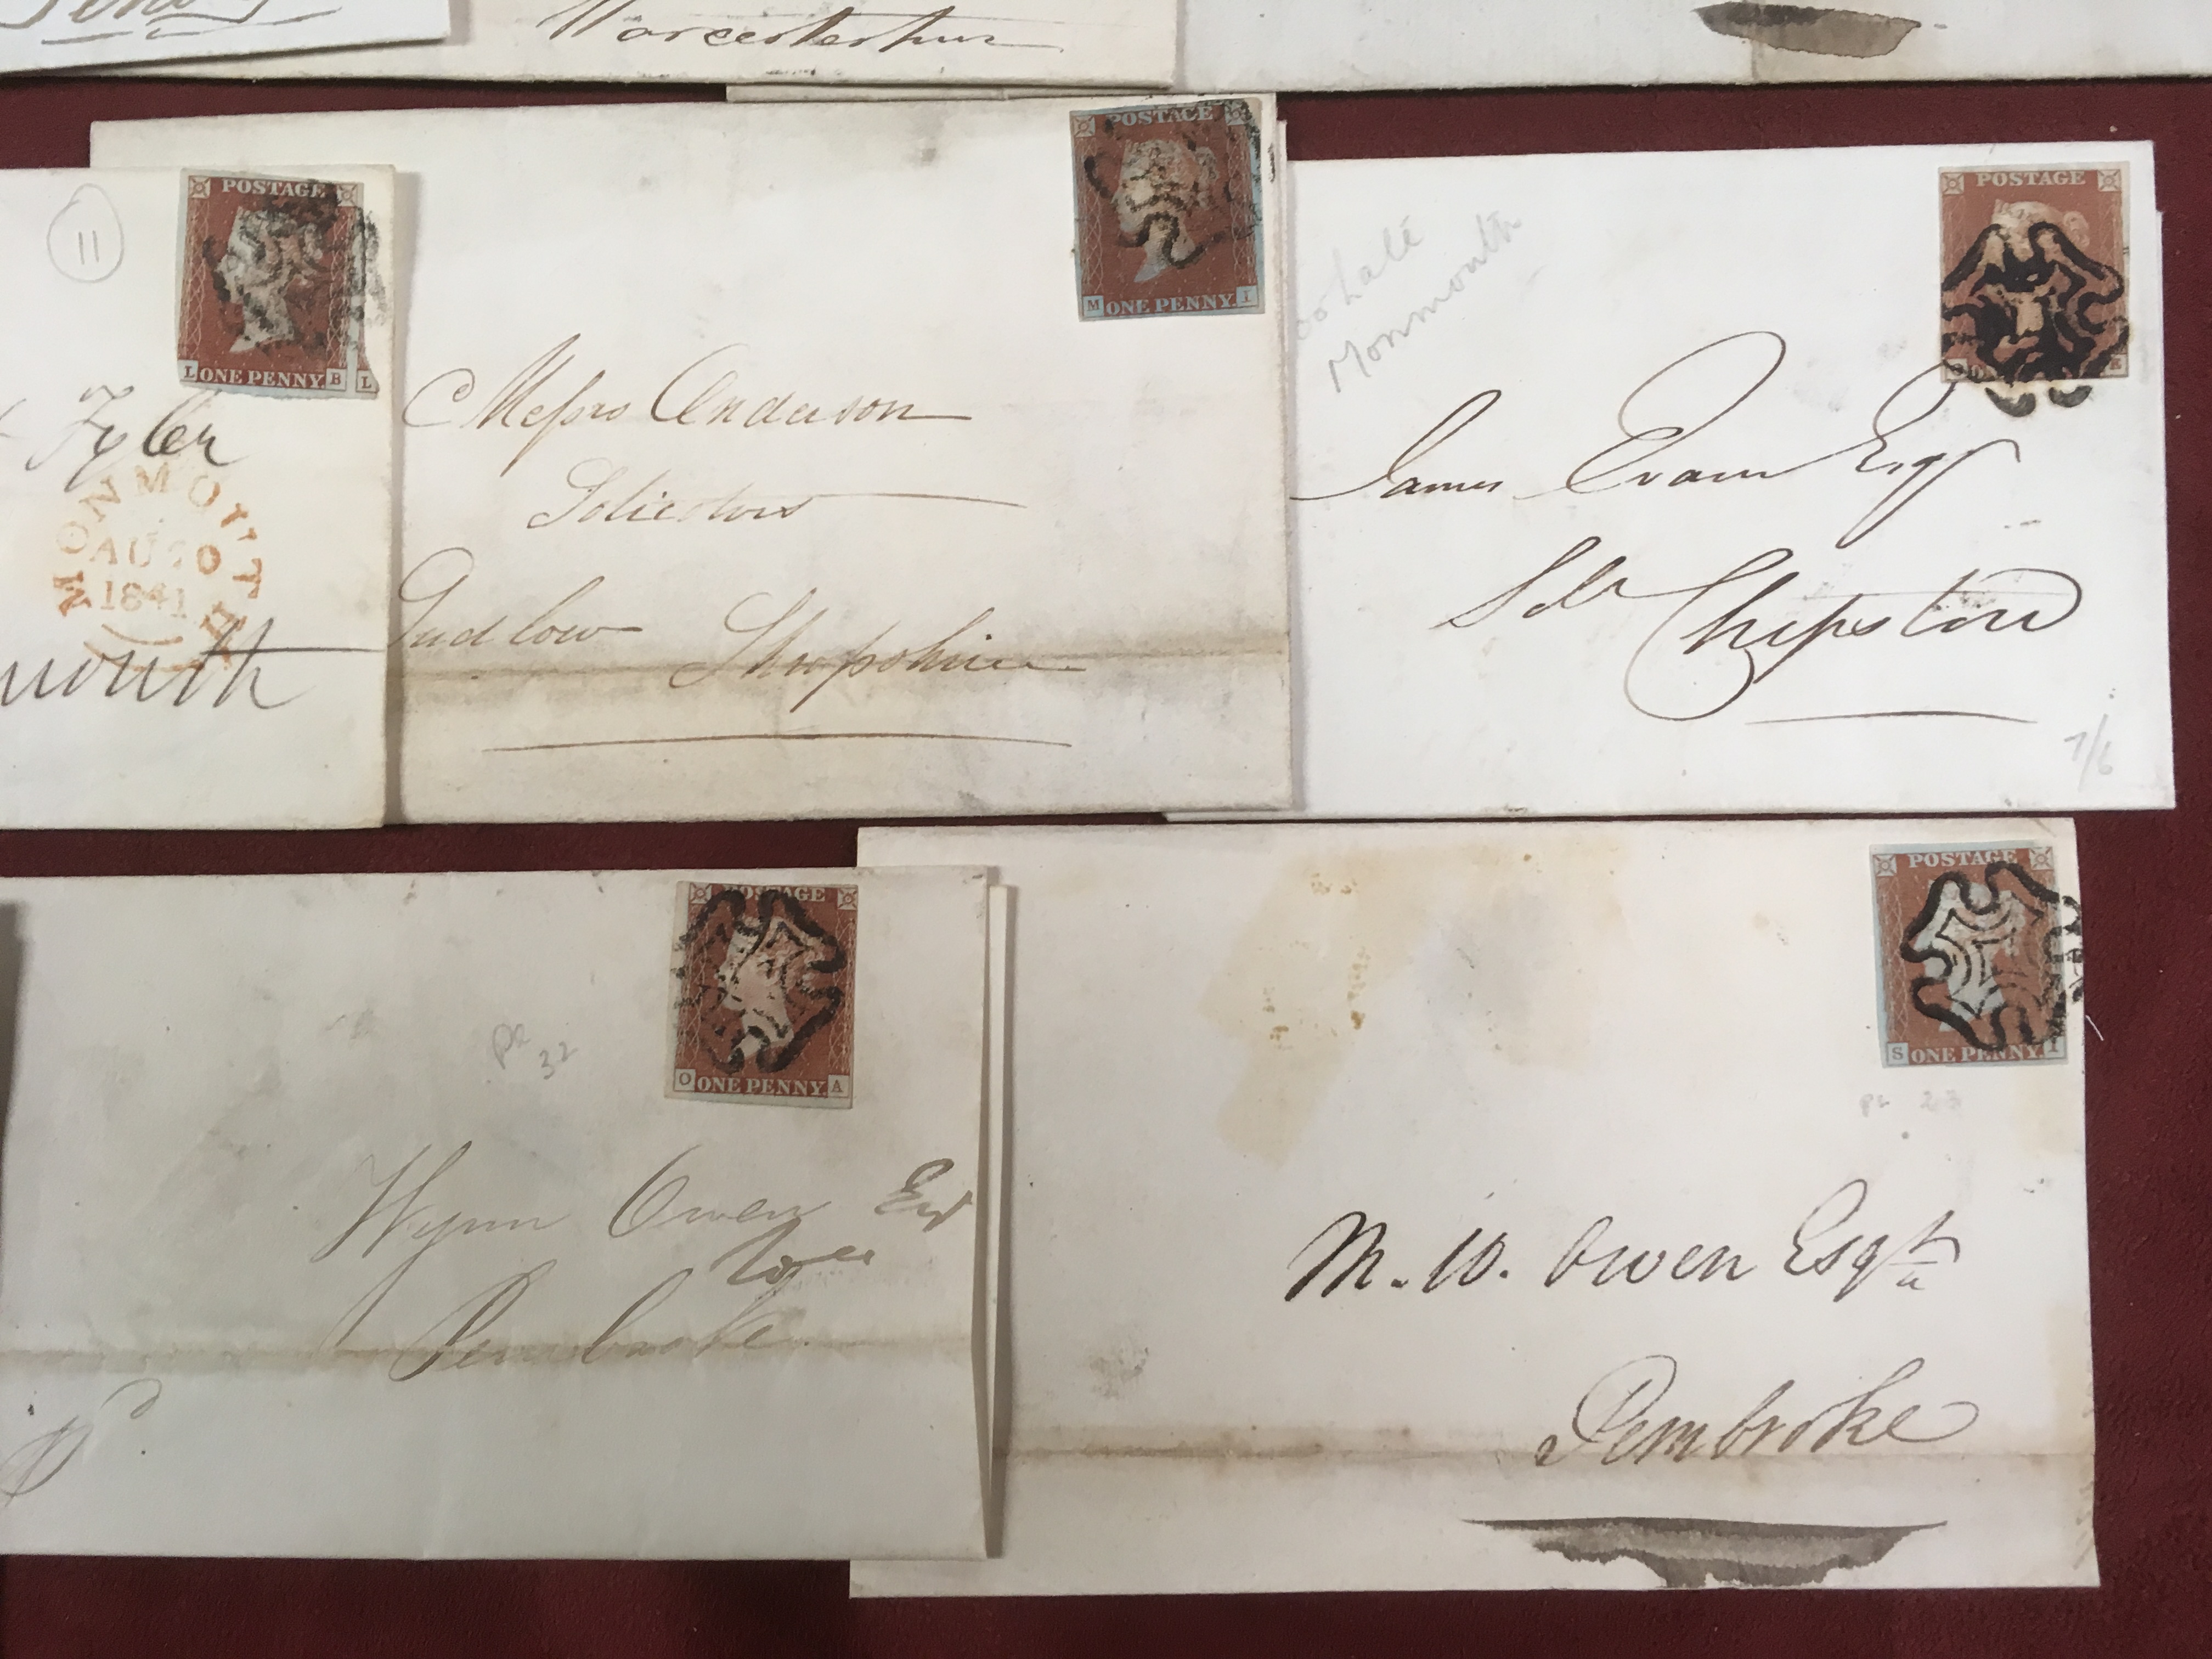 Worcestershire
POSTAGE
L ONE PENNY B
L
11
Tyler
MONMOUTH
AU 20
1841
mouth
POSTAGE
M ONE PENNY I
Messrs Anderson
Solicitors
Ludlow Shropshire
POSTAGE
E
Monmouth
James Evans Esqr
Solr
Chepstow
7/6
POSTAGE
O ONE PENNY A
32
Wynn Owen Esq
Pembroke
POSTAGE
S ONE PENNY I
23
M. W. Owen Esqre
Pembroke